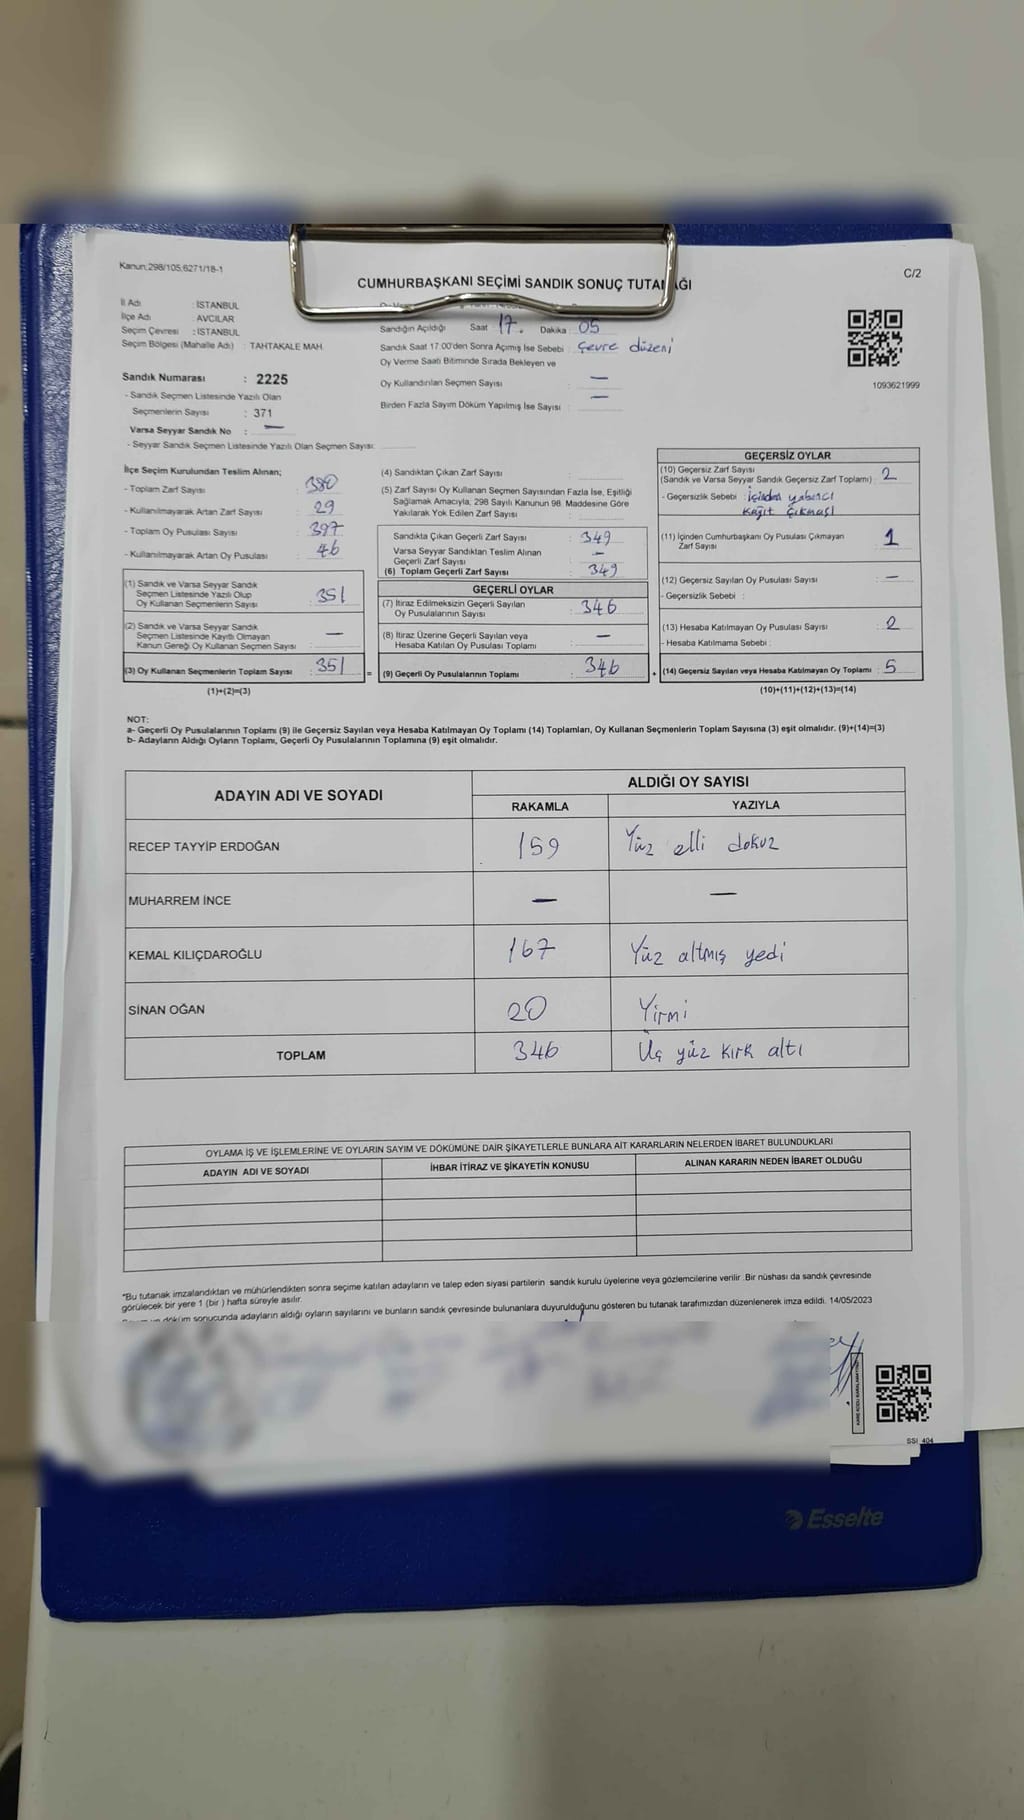 Kanun;298/105,6271/18-1
C/2
CUMHURBAŞKANI SEÇİMİ SANDIK SONUÇ TUTANAĞI
İl Adı : İSTANBUL
İlçe Adı : AVCILAR
Seçim Çevresi : İSTANBUL
Seçim Bölgesi (Mahalle Adı) : TAHTAKALE MAH.
Sandık Numarası : 2225
- Sandık Seçmen Listesinde Yazılı Olan
Seçmenlerin Sayısı : 371
Varsa Seyyar Sandık No : —
- Seyyar Sandık Seçmen Listesinde Yazılı Olan Seçmen Sayısı:
Sandığın Açıldığı Saat 17. Dakika : 05
Sandık Saat 17:00'den Sonra Açımış İse Sebebi : Çevre düzeni
Oy Verme Saati Bitiminde Sırada Bekleyen ve
Oy Kullandırılan Seçmen Sayısı : —
Birden Fazla Sayım Döküm Yapılmış İse Sayısı : —
1093621999
İlçe Seçim Kurulundan Teslim Alınan;
- Toplam Zarf Sayısı : 380
- Kullanılmayarak Artan Zarf Sayısı : 29
- Toplam Oy Pusulası Sayısı : 397
- Kullanılmayarak Artan Oy Pusulası : 46
(1) Sandık ve Varsa Seyyar Sandık
Seçmen Listesinde Yazılı Olup
Oy Kullanan Seçmenlerin Sayısı : 351
(2) Sandık ve Varsa Seyyar Sandık
Seçmen Listesinde Kayıtlı Olmayan
Kanun Gereği Oy Kullanan Seçmen Sayısı : —
(3) Oy Kullanan Seçmenlerin Toplam Sayısı : 351
(1)+(2)=(3)
(4) Sandıktan Çıkan Zarf Sayısı :
(5) Zarf Sayısı Oy Kullanan Seçmen Sayısından Fazla İse, Eşitliği
Sağlamak Amacıyla, 298 Sayılı Kanunun 98. Maddesine Göre
Yakılarak Yok Edilen Zarf Sayısı :
Sandıkta Çıkan Geçerli Zarf Sayısı : 349
Varsa Seyyar Sandıktan Teslim Alınan
Geçerli Zarf Sayısı : —
(6) Toplam Geçerli Zarf Sayısı : 349
GEÇERLİ OYLAR
(7) İtiraz Edilmeksizin Geçerli Sayılan
Oy Pusulalarının Sayısı : 346
(8) İtiraz Üzerine Geçerli Sayılan veya
Hesaba Katılan Oy Pusulası Toplamı : —
= (9) Geçerli Oy Pusulalarının Toplamı : 346 +
GEÇERSİZ OYLAR
(10) Geçersiz Zarf Sayısı
(Sandık ve Varsa Seyyar Sandık Geçersiz Zarf Toplamı) : 2
- Geçersizlik Sebebi : İçinden yabancı
Kağıt Çıkması
(11) İçinden Cumhurbaşkanı Oy Pusulası Çıkmayan
Zarf Sayısı : 1
(12) Geçersiz Sayılan Oy Pusulası Sayısı : —
- Geçersizlik Sebebi :
(13) Hesaba Katılmayan Oy Pusulası Sayısı : 2
- Hesaba Katılmama Sebebi :
(14) Geçersiz Sayılan veya Hesaba Katılmayan Oy Toplamı : 5
(10)+(11)+(12)+(13)=(14)
NOT:
a- Geçerli Oy Pusulalarının Toplamı (9) ile Geçersiz Sayılan veya Hesaba Katılmayan Oy Toplamı (14) Toplamları, Oy Kullanan Seçmenlerin Toplam Sayısına (3) eşit olmalıdır. (9)+(14)=(3)
b- Adayların Aldığı Oyların Toplamı, Geçerli Oy Pusulalarının Toplamına (9) eşit olmalıdır.
ADAYIN ADI VE SOYADI
ALDIĞI OY SAYISI
RAKAMLA YAZIYLA
RECEP TAYYİP ERDOĞAN 159 Yüz elli dokuz
MUHARREM İNCE — —
KEMAL KILIÇDAROĞLU 167 Yüz altmış yedi
SİNAN OĞAN 20 Yirmi
TOPLAM 346 Üç yüz kırk altı
OYLAMA İŞ VE İŞLEMLERİNE VE OYLARIN SAYIM VE DÖKÜMÜNE DAİR ŞİKAYETLERLE BUNLARA AİT KARARLARIN NELERDEN İBARET BULUNDUKLARI
ADAYIN ADI VE SOYADI İHBAR İTİRAZ VE ŞİKAYETİN KONUSU ALINAN KARARIN NEDEN İBARET OLDUĞU
"Bu tutanak imzalandıktan ve mühürlendikten sonra seçime katılan adayların ve talep eden siyasi partilerin sandık kurulu üyelerine veya gözlemcilerine verilir .Bir nüshası da sandık çevresinde
görülecek bir yere 1 (bir ) hafta süreyle asılır.
döküm sonucunda adayların aldığı oyların sayılarını ve bunların sandık çevresinde bulunanlara duyurulduğunu gösteren bu tutanak tarafımızdan düzenlenerek imza edildi. 14/05/2023
SSI_404
Esselte